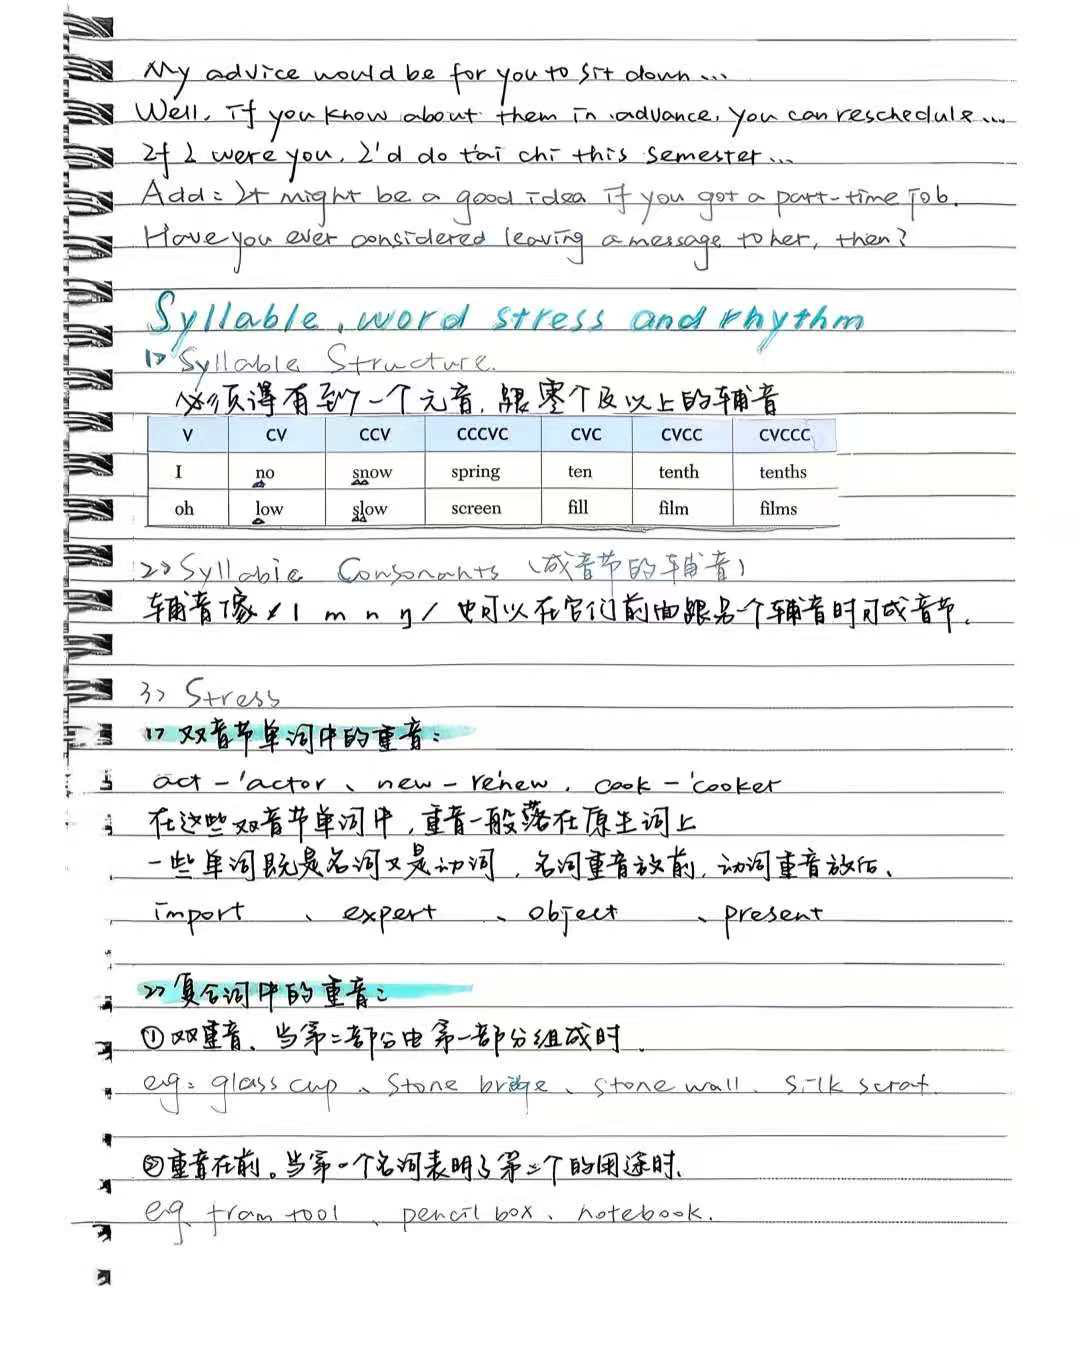 My advice would be for you to sit down...
Well, if you know about them in advance, you can reschedule...
If I were you, I'd do tai chi this semester...
Add: It might be a good idea if you got a part-time job.
Have you ever considered leaving a message to her, then?
Syllable, word stress and rhythm
1> Syllable Structure.
必须得有到一个元音，跟零个及以上的辅音
V CV CCV CCCVC CVC CVCC CVCCC
I no snow spring ten tenth tenths
oh low slow screen fill film films
2> Syllabic Consonants (成音节的辅音)
辅音像 / l m n ŋ / 也可以在它们前面跟另一个辅音时可成音节.
3> Stress
1> 双音节单词中的重音:
act - 'actor、new - re'new, cook - 'cooker
在这些双音节单词中，重音一般落在原生词上
一些单词既是名词又是动词，名词重音放前，动词重音放后、
import 、expert 、object 、present
2> 复合词中的重音:
①双重音、当第二部分由第一部分组成时.
eg: glass cup、stone bridge、stone wall、silk scraf.
②重音在前。当第一个名词表明了第二个的用途时、
eg. tool、pencil box、notebook.